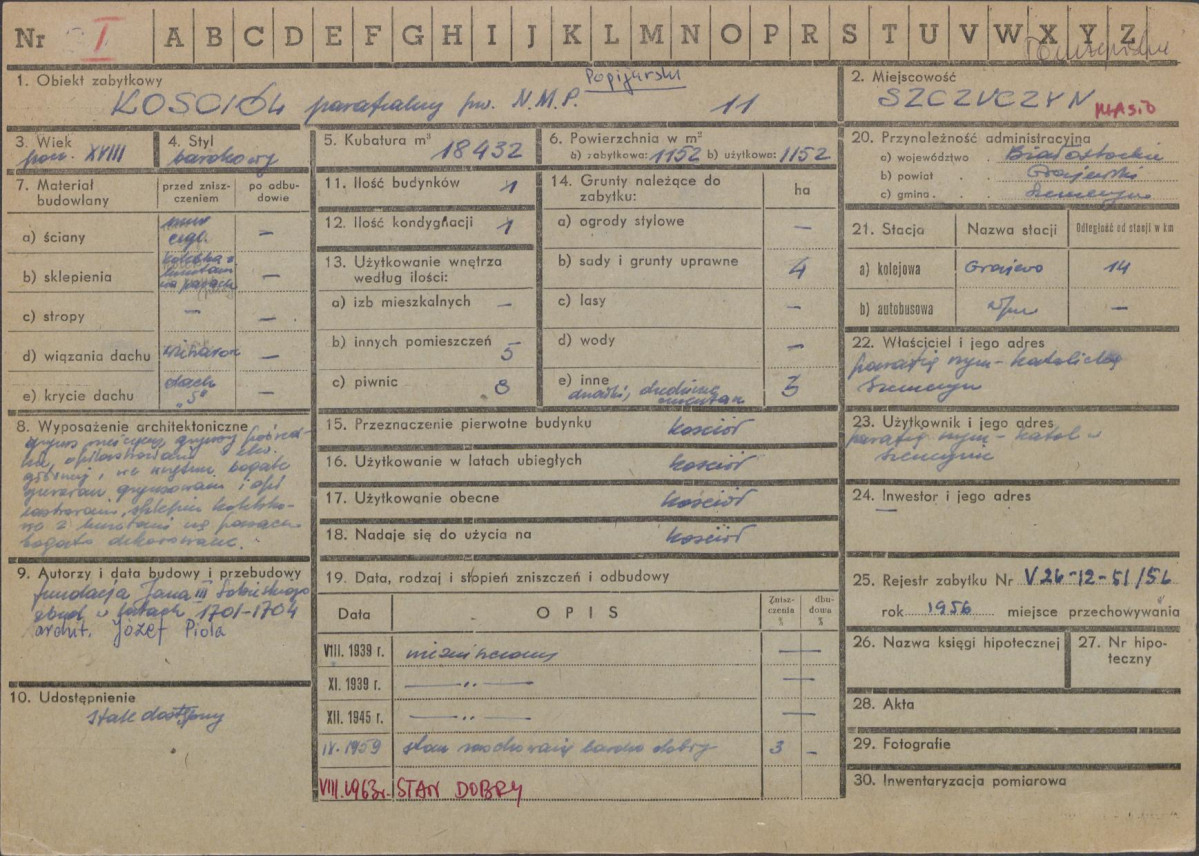 Nr I A B C D E F G H I J K L M N O P R S T U V W X Y Z
1. Obiekt zabytkowy
Popijarski
KOŚCIÓŁ parafialny pw. N.M.P. 11
2. Miejscowość
SZCZUCZYN MIASTO
3. Wiek
pocz. XVIII
4. Styl
barokowy
5. Kubatura m³
18432
6. Powierzchnia w m²
b) zabytkowa: 1152 b) użytkowa: 1152
7. Materiał budowlany
przed zniszczeniem
po odbudowie
a) ściany
mur cegl. —
b) sklepienia
kolebka z lunetami na pasach —
c) stropy — —
d) wiązania dachu —
e) krycie dachu
dach „S" —
8. Wyposażenie architektoniczne
sklepienia
z lunetami na pasach
bogato dekorowane.
9. Autorzy i data budowy i przebudowy
fundacja Jana III Sobieskiego
zbud. w latach 1701-1704
archit. Józef Piola
10. Udostępnienie
stale dostępny
11. Ilość budynków 1
12. Ilość kondygnacji 1
13. Użytkowanie wnętrza
według ilości:
a) izb mieszkalnych —
b) innych pomieszczeń 5
c) piwnic 8
14. Grunty należące do
zabytku: ha
a) ogrody stylowe —
b) sady i grunty uprawne 4
c) lasy —
d) wody —
e) inne 3
cmentarz
15. Przeznaczenie pierwotne budynku kościół
16. Użytkowanie w latach ubiegłych kościół
17. Użytkowanie obecne kościół
18. Nadaje się do użycia na kościół
19. Data, rodzaj i stopień zniszczeń i odbudowy
Data OPIS Zniszczenia % dbudowa %
VIII. 1939 r. niezniszczony —
XI. 1939 r. — „ — —
XII. 1945 r. — „ — —
IX. 1959 stan zachowania bardzo dobry 3 —
VIII.1963r. STAN DOBRY
20. Przynależność administracyjna
a) województwo . Białostockie
b) powiat . . Grajewski
c) gmina . . . Szczuczyn
21. Stacja Nazwa stacji Odległość od stacji w km
a) kolejowa Grajewo 14
b) autobusowa —
22. Właściciel i jego adres
parafia rzym-katolicka
Szczuczyn
23. Użytkownik i jego adres
parafia rzym-katol w
Szczuczynie
24. Inwestor i jego adres
—
25. Rejestr zabytku Nr V 26-12-51/56
rok 1956 miejsce przechowywania
26. Nazwa księgi hipotecznej
27. Nr hipoteczny
28. Akta
29. Fotografie
30. Inwentaryzacja pomiarowa